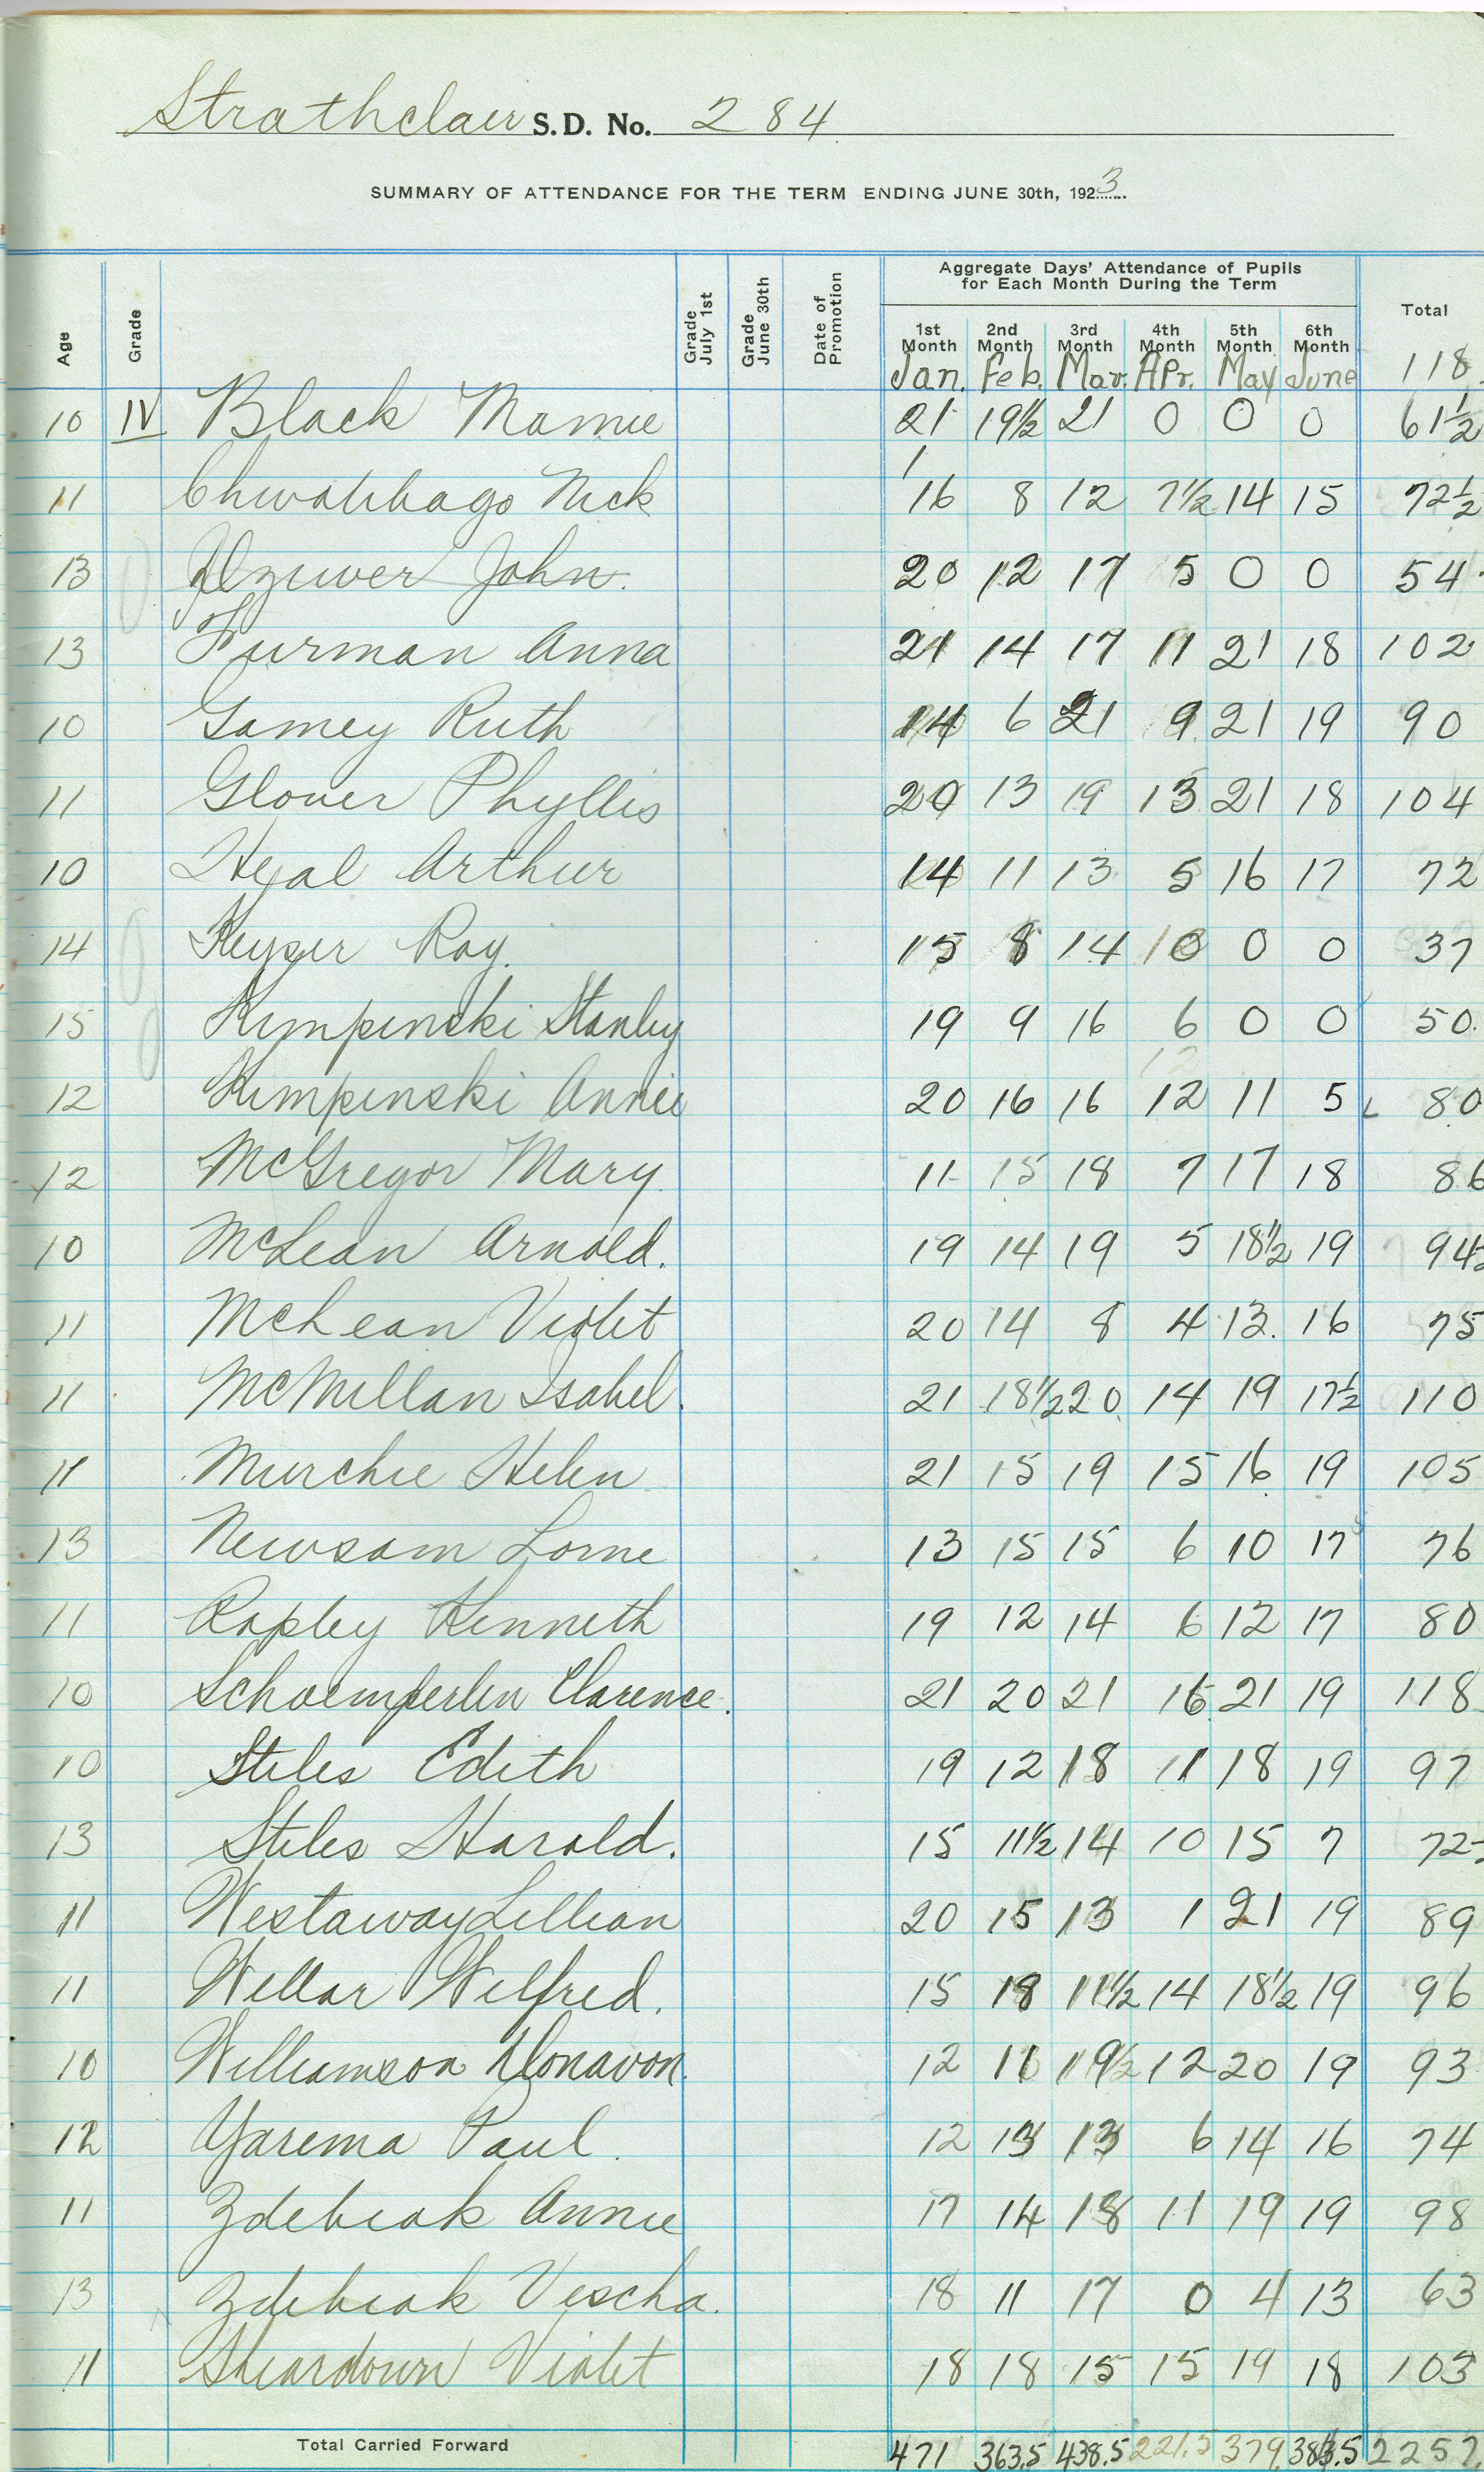 Strathclair S.D. No. 284
SUMMARY OF ATTENDANCE FOR THE TERM ENDING JUNE 30th, 1923
Age Grade Grade July 1st Grade June 30th Date of Promotion Aggregate Days' Attendance of Pupils for Each Month During the Term Total
1st Month 2nd Month 3rd Month 4th Month 5th Month 6th Month
Jan. Feb. Mar. Apr. May June 118
10 IV Black Mamie 21 19½ 21 0 0 0 61½
11 Nick 16 8 12 7½ 14 15 72½
13 John 20 12 17 5 0 0 54
13 Furman Anna 21 14 17 11 21 18 102
10 Gamey Ruth 14 6 21 9 21 19 90
11 Glover Phyllis 20 13 19 13 21 18 104
10 Heal Arthur 14 11 13 5 16 17 72
14 Keyser Roy. 15 8 14 0 0 0 37
15 Kimpinski Stanley 19 9 16 6 0 0 50
12 Kimpinski Annie 20 16 16 12 11 5 80
12 McGregor Mary 11 15 18 7 17 18 86
10 McLean Arnold. 19 14 19 5 18½ 19 94
11 McLean Violet 20 14 8 4 13. 16 75
11 McMillan Isabel. 21 18½ 20 14 19 17½ 110
11 Murchie Helen 21 15 19 15 16 19 105
13 Newsam Lorne 13 15 15 6 10 17 76
11 Rapley Kenneth 19 12 14 6 12 17 80
10 Schoemperlen Clarence. 21 20 21 16 21 19 118
10 Stiles Edith 19 12 18 11 18 19 97
13 Stiles Harold. 15 11½ 14 10 15 7 72
11 Westaway Lillian 20 15 13 1 21 19 89
11 Wellar Wilfred. 15 18 11½ 14 18½ 19 96
10 Williamson Donavon. 12 11 19½ 12 20 19 93
12 Yarema Paul. 12 13 13 6 14 16 74
11 Zdebiak Annie 17 14 18 11 19 19 98
13 Zdebiak Vescha. 18 11 17 0 4 13 63
11 Sheardown Violet 18 18 15 15 19 18 103
Total Carried Forward 471 363.5 438.5 221.5 379. 383.5 2257